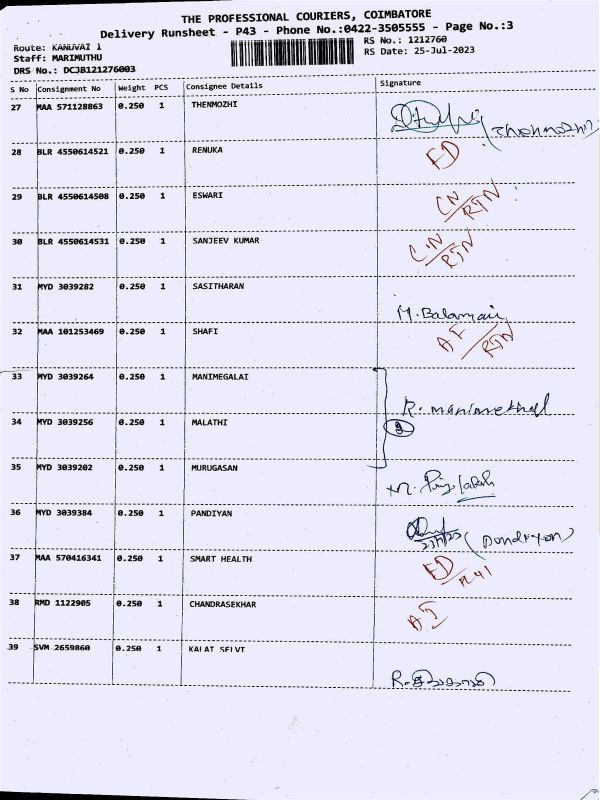 THE PROFESSIONAL COURIERS, COIMBATORE
Delivery Runsheet - P43 - Phone No.:0422-3505555 - Page No.:3
Route: KANUVAI 1 RS No.: 1212760
Staff: MARIMUTHU RS Date: 25-Jul-2023
DRS No.: DCJB121276003
S No Consignment No Weight PCS Consignee Details Signature
27 MAA 571128863 0.250 1 THENMOZHI
28 BLR 4550614521 0.250 1 RENUKA FD
29 BLR 4550614508 0.250 1 ESWARI CN/RTN
30 BLR 4550614531 0.250 1 SANJEEV KUMAR CN/RTN
31 MYD 3039282 0.250 1 SASITHARAN
32 MAA 101253469 0.250 1 SHAFI RTN
33 MYD 3039264 0.250 1 MANIMEGALAI
34 MYD 3039256 0.250 1 MALATHI
35 MYD 3039202 0.250 1 MURUGASAN
36 MYD 3039384 0.250 1 PANDIYAN
37 MAA 570416341 0.250 1 SMART HEALTH FD
38 RMD 1122905 0.250 1 CHANDRASEKHAR
39 SVM 2659860 0.250 1 KALAT SELVI